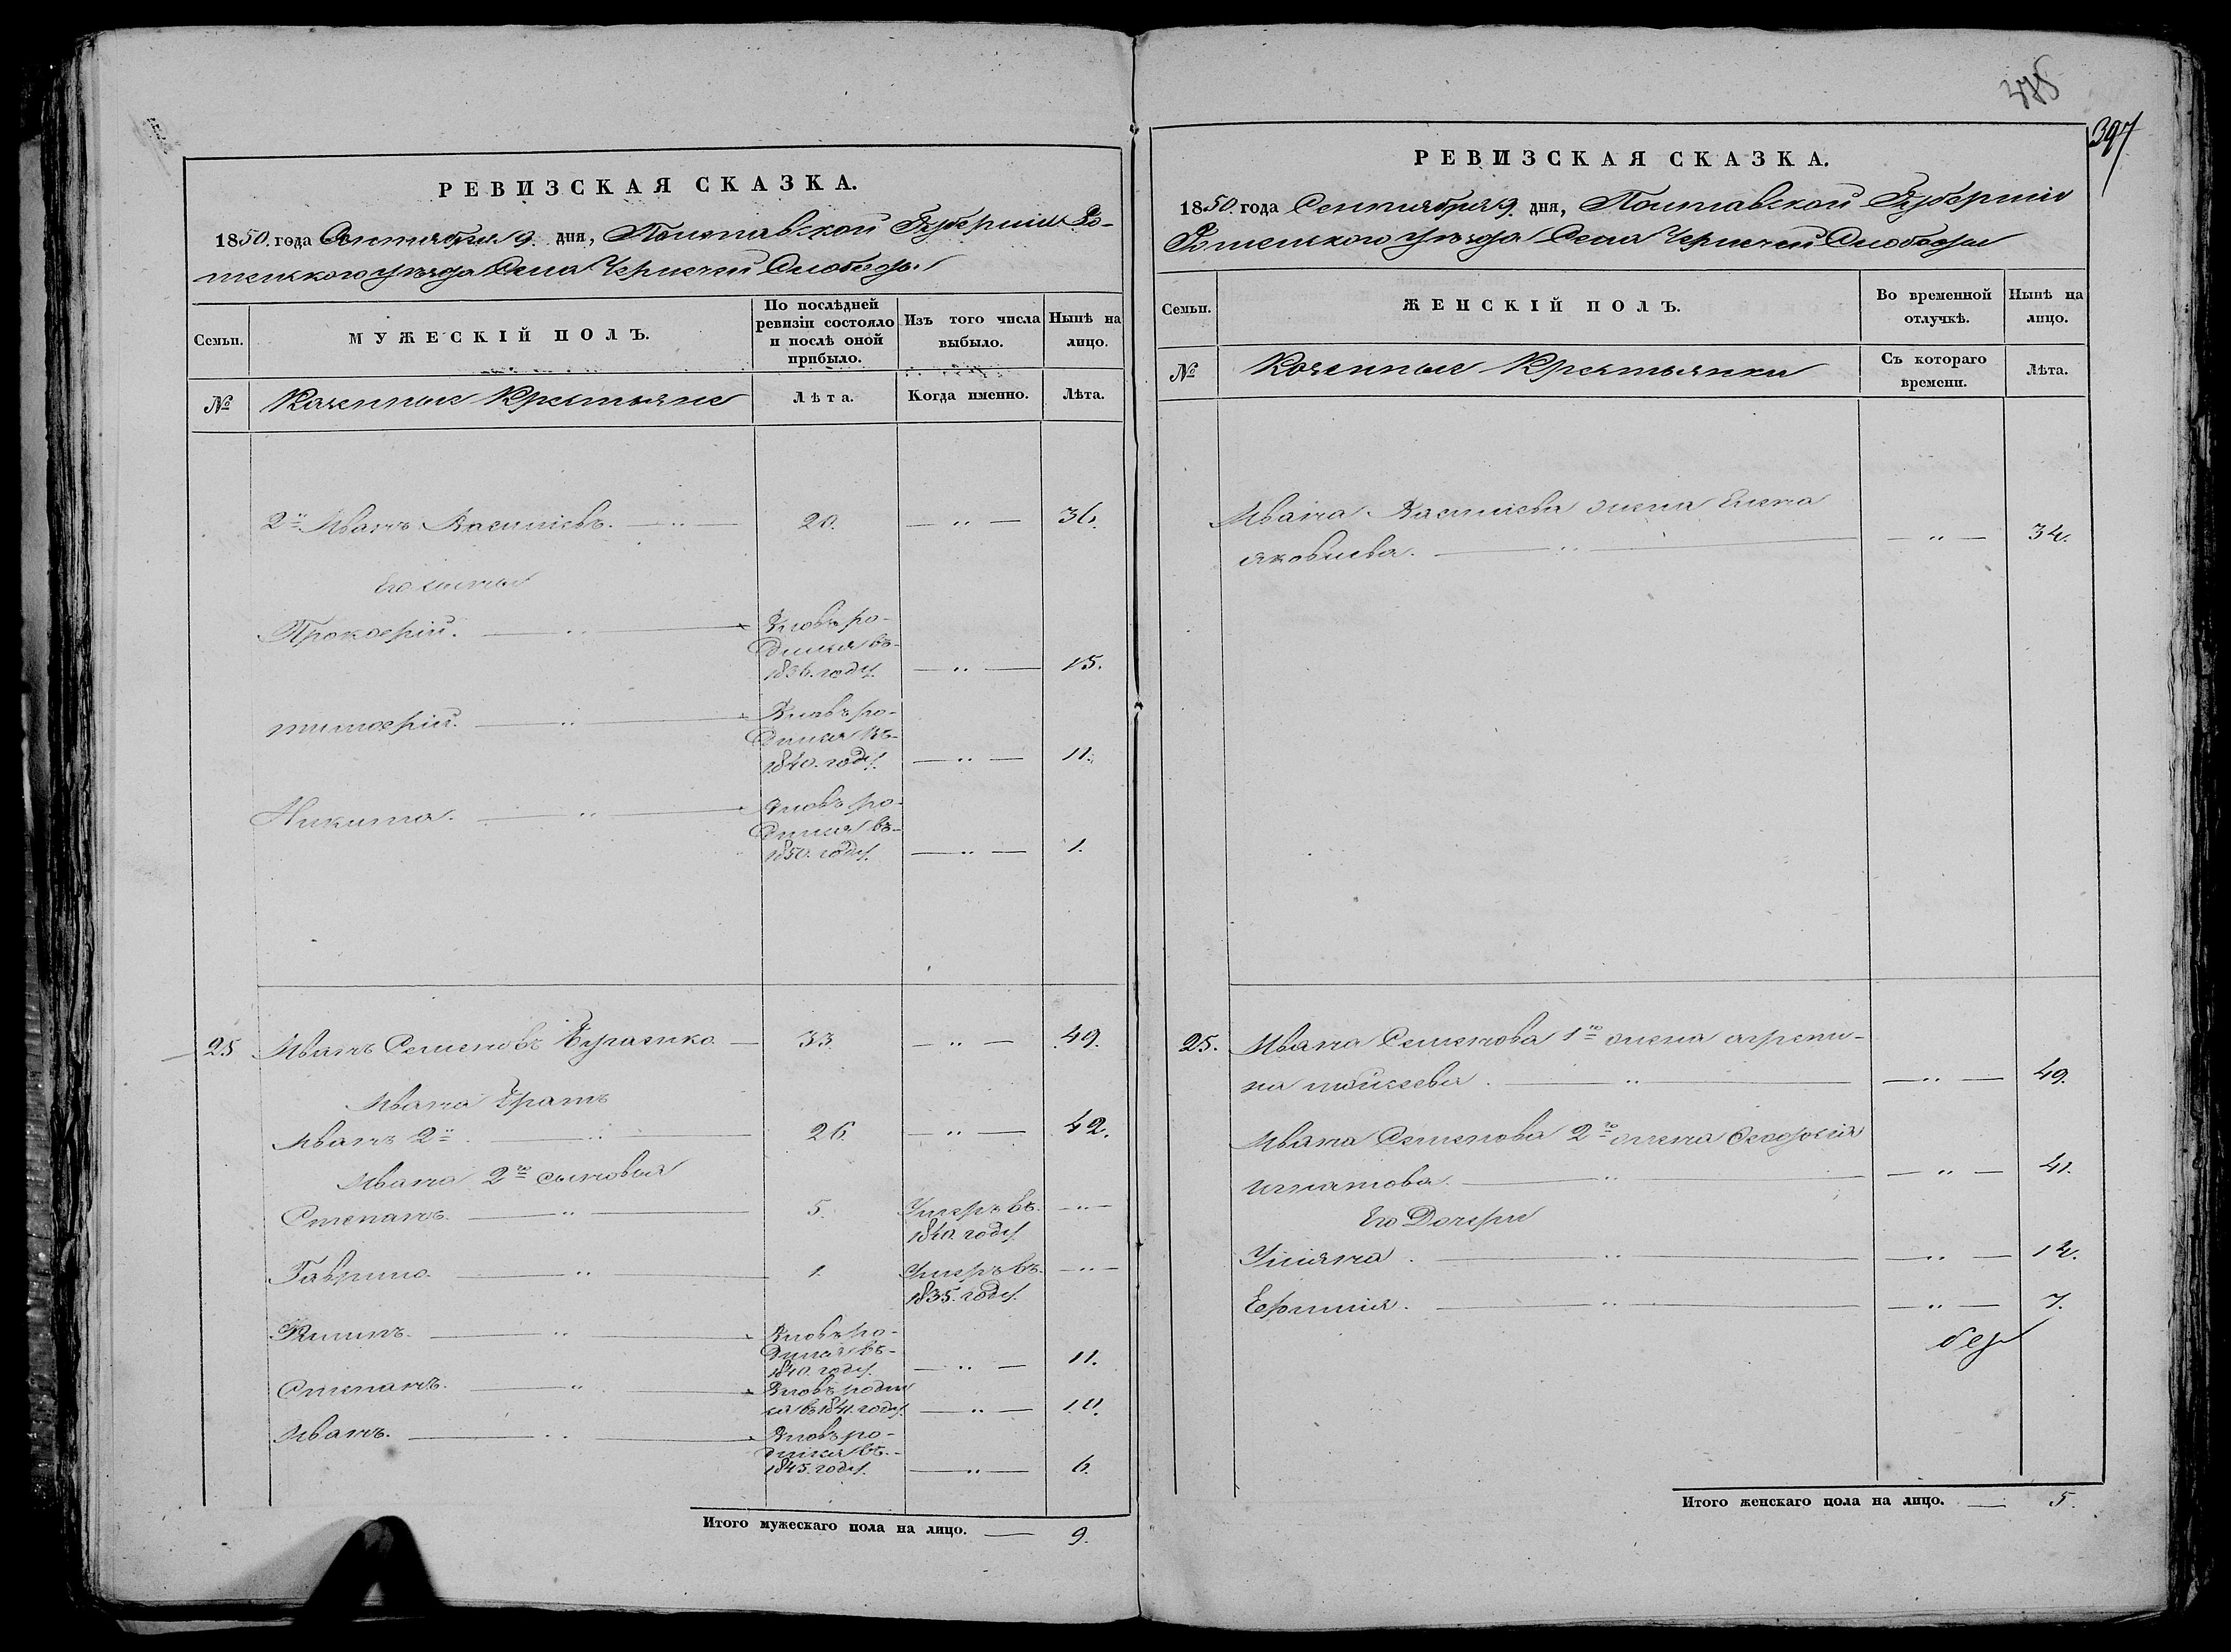 РЕВИЗСКАЯ СКАЗКА.
1850. года Сентября 9. дня, Полтавской Губернии Ро-
менского уѣзда Села Чернечей Слободы
Семьи.
МУЖЕСКІЙ ПОЛЪ.
По послѣдней ревизіи состояло и послѣ оной прибыло.
Изъ того числа выбыло.
Нынѣ на лицо.
№
Казенные Крестьяне
Лѣта.
Когда именно.
Лѣта.
2й Иванъ Василіевъ. — " — 20. — " — 36.
Его сыны
Прокофій. — " — Вновь ро-
дился въ
1836. году. — " — 15.
тимофій. — " — Вновь ро-
дился въ
1840. году. — " — 11.
Никита. — " — Вновь ро-
дился въ
1850. году. — " — 1.
25 Иванъ Семеновъ — 33. — " — 49.
Ивана Братъ
Иванъ 2й. — " — 26. — " — 42.
Ивана 2го сыновья
Степанъ. — " — 5. Умеръ въ — " —
1840. году.
Гаврило. — " — 1. Умеръ въ — " —
1835. году.
Филипъ. — " — Вновь ро-
дился въ
1840. году. — " — 11.
Степанъ. — " — Вновь родил
ся въ 1841. году. — " — 10.
Иванъ. — " — Вновь ро-
дился въ
1845. году. — " — 6.
Итого мужескаго пола на лицо. — 9.
397
РЕВИЗСКАЯ СКАЗКА.
1850. года Сентября 9. дня, Полтавской Губернии
Роменского уѣзда Села Чернечей Слободы
Семьи.
ЖЕНСКІЙ ПОЛЪ.
Во временной отлучкѣ.
Нынѣ на лицо.
№
Казенные Крестьянки
Съ котораго времени.
Лѣта.
Ивана Василіева жена Елена
яковлева. — " — — " — 34.
25. Ивана Семенова 1го жена агрепи-
на — " — — " — 49.
Ивана Семенова 2го жена Феодосія
игнатова. — " — — " — 41.
Его Дочери
Уліяна. — " — — " — 12.
Ефимія. — " — — " — 7.
Итого женскаго пола на лицо. — 5.